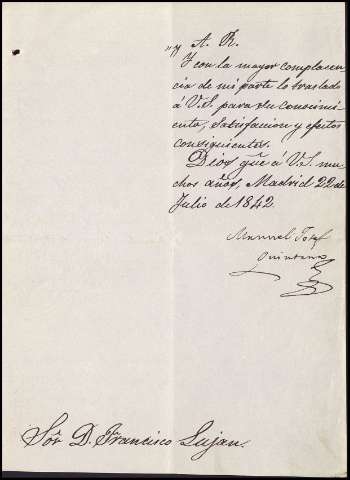 A. R.
Y con la mayor complacen-
cia de mi parte lo traslado
á V.S. para su conocimi-
ento, satisfaccion y efectos
consiguientes.
Dios gue á V.S. mu-
chos años, Madrid 22 de
Julio de 1842.
Manuel Josef
Quintana
Sor. D. Francisco Lujan.